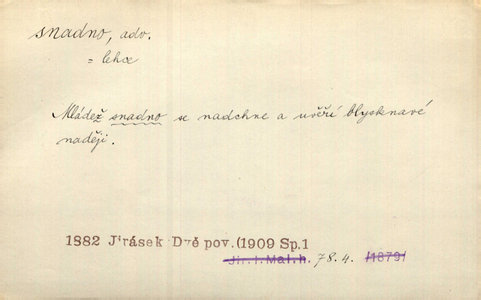 snadno, adv.
= lehce
Mládež snadno se nadchne a uvěří blysknavé
naději.
1882 Jirásek Dvě pov.(1909 Sp.1
Jir.I.Mal.h. 78.4. /1879/